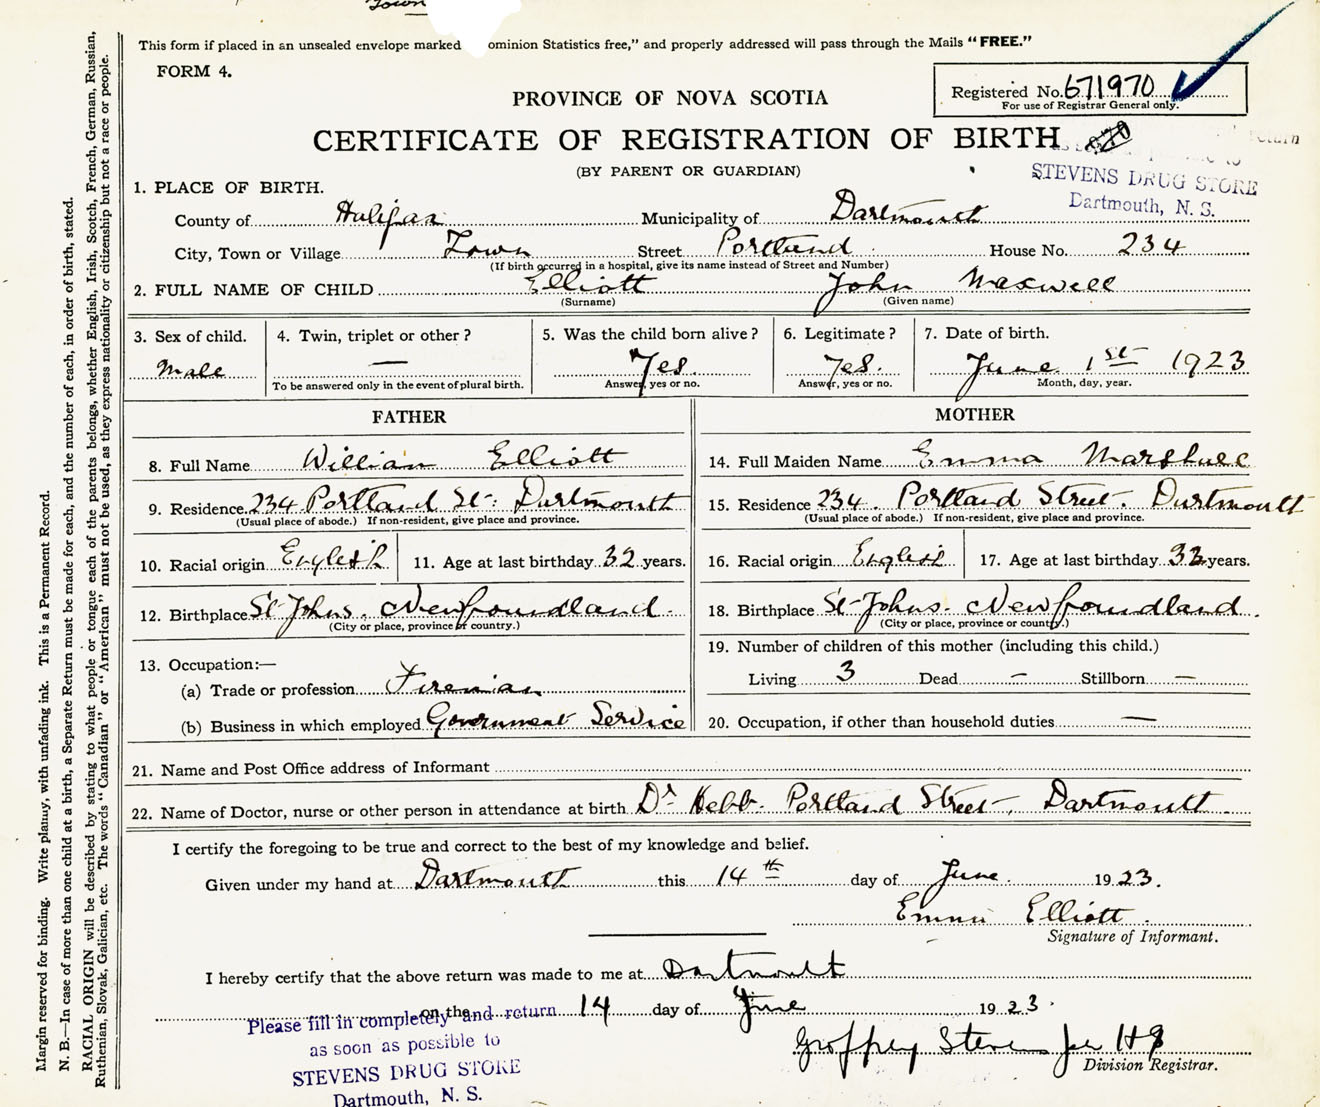 Town
This form if placed in an unsealed envelope marked ominion Statistics free," and properly addressed will pass through the Mails "FREE."
FORM 4.
Registered No. 671970
For use of Registrar General only.
PROVINCE OF NOVA SCOTIA
CERTIFICATE OF REGISTRATION OF BIRTH
(BY PARENT OR GUARDIAN)
STEVENS DRUG STORE
Dartmouth, N. S.
1. PLACE OF BIRTH.
County of Halifax Municipality of Dartmouth
City, Town or Village Town Street Portland House No. 234
(If birth occurred in a hospital, give its name instead of Street and Number)
2. FULL NAME OF CHILD Elliott John Maxwell
(Surname) (Given name)
3. Sex of child. 4. Twin, triplet or other? 5. Was the child born alive? 6. Legitimate? 7. Date of birth.
Male — Yes. Yes. June 1st 1923
To be answered only in the event of plural birth. Answer, yes or no. Answer, yes or no. Month, day, year.
FATHER
8. Full Name William Elliott
9. Residence 234 Portland St: Dartmouth
(Usual place of abode.) If non-resident, give place and province.
10. Racial origin English 11. Age at last birthday 32 years.
12. Birthplace St Johns. Newfoundland.
(City or place, province or country.)
13. Occupation:—
(a) Trade or profession Fireman
(b) Business in which employed Government Service
MOTHER
14. Full Maiden Name Emma Marshall
15. Residence 234. Portland Street. Dartmouth
(Usual place of abode.) If non-resident, give place and province.
16. Racial origin English 17. Age at last birthday 33 years.
18. Birthplace St Johns. Newfoundland.
(City or place, province or country.)
19. Number of children of this mother (including this child.)
Living 3 Dead — Stillborn —
20. Occupation, if other than household duties —
21. Name and Post Office address of Informant
22. Name of Doctor, nurse or other person in attendance at birth Dr Hebb. Portland Street, Dartmouth
I certify the foregoing to be true and correct to the best of my knowledge and belief.
Given under my hand at Dartmouth this 14th day of June. 1923.
Emma Elliott.
Signature of Informant.
I hereby certify that the above return was made to me at Dartmouth
on the 14 day of June 1923.
Please fill in completely and return
as soon as possible to
STEVENS DRUG STORE
Dartmouth, N. S.
Division Registrar.
Margin reserved for binding. Write plainly, with unfading ink. This is a Permanent Record.
N. B.—In case of more than one child at a birth, a Separate Return must be made for each, and the number of each, in order of birth, stated.
RACIAL ORIGIN will be described by stating to what people or tongue each of the parents belongs, whether English, Irish, Scotch, French, German, Russian,
Ruthenian, Slovak, Galician, etc. The words "Canadian" or "American" must not be used, as they express nationality or citizenship but not a race or people.